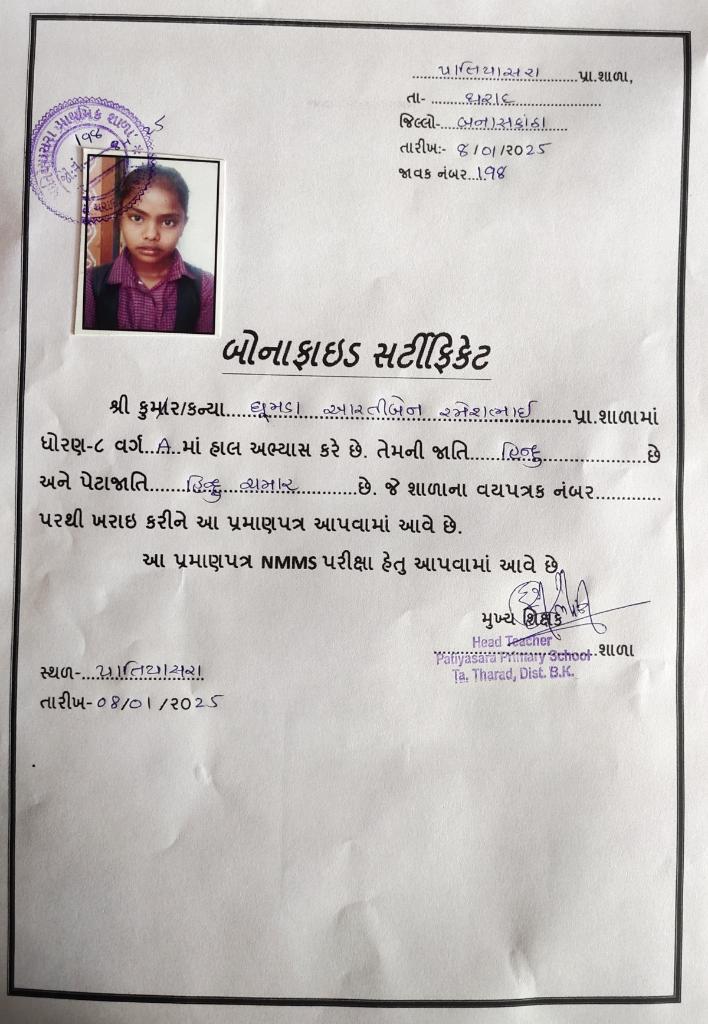 પાતિયાસરા પ્રા.શાળા,
તા- થરાદ
જિલ્લો- બનાસકાંઠા
તારીખ:- ૮/૦૧/૨૦25
જાવક નંબર..૧૧૪
પ્રાથમિક શાળા
બોનાફાઇડ સર્ટીફિકેટ
શ્રી કુમાર/કન્યા ધૂમડા આરતીબેન રમેશભાઈ પ્રા.શાળામાં
ધોરણ-૮ વર્ગ..A..માં હાલ અભ્યાસ કરે છે. તેમની જાતિ હિન્દુ છે
અને પેટાજાતિ હિન્દુ ચમાર છે. જે શાળાના વયપત્રક નંબર
પરથી ખરાઇ કરીને આ પ્રમાણપત્ર આપવામાં આવે છે.
આ પ્રમાણપત્ર NMMS પરીક્ષા હેતુ આપવામાં આવે છે
મુખ્ય શિક્ષક
Head Teacher
શાળા
Patiyasara Primary School
Ta. Tharad, Dist. B.K.
સ્થળ- પાતિયાસરા
તારીખ- ૦8/૦1/૨૦25